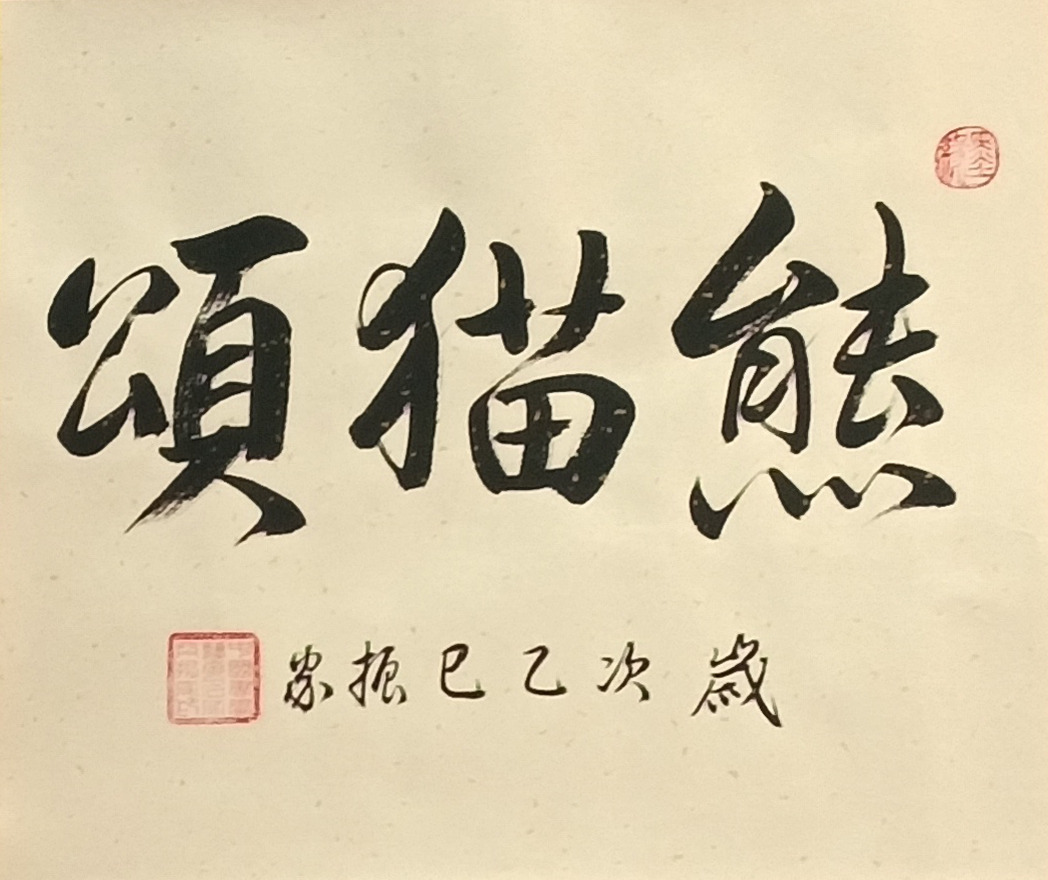 熊猫頌
歲次乙巳振家